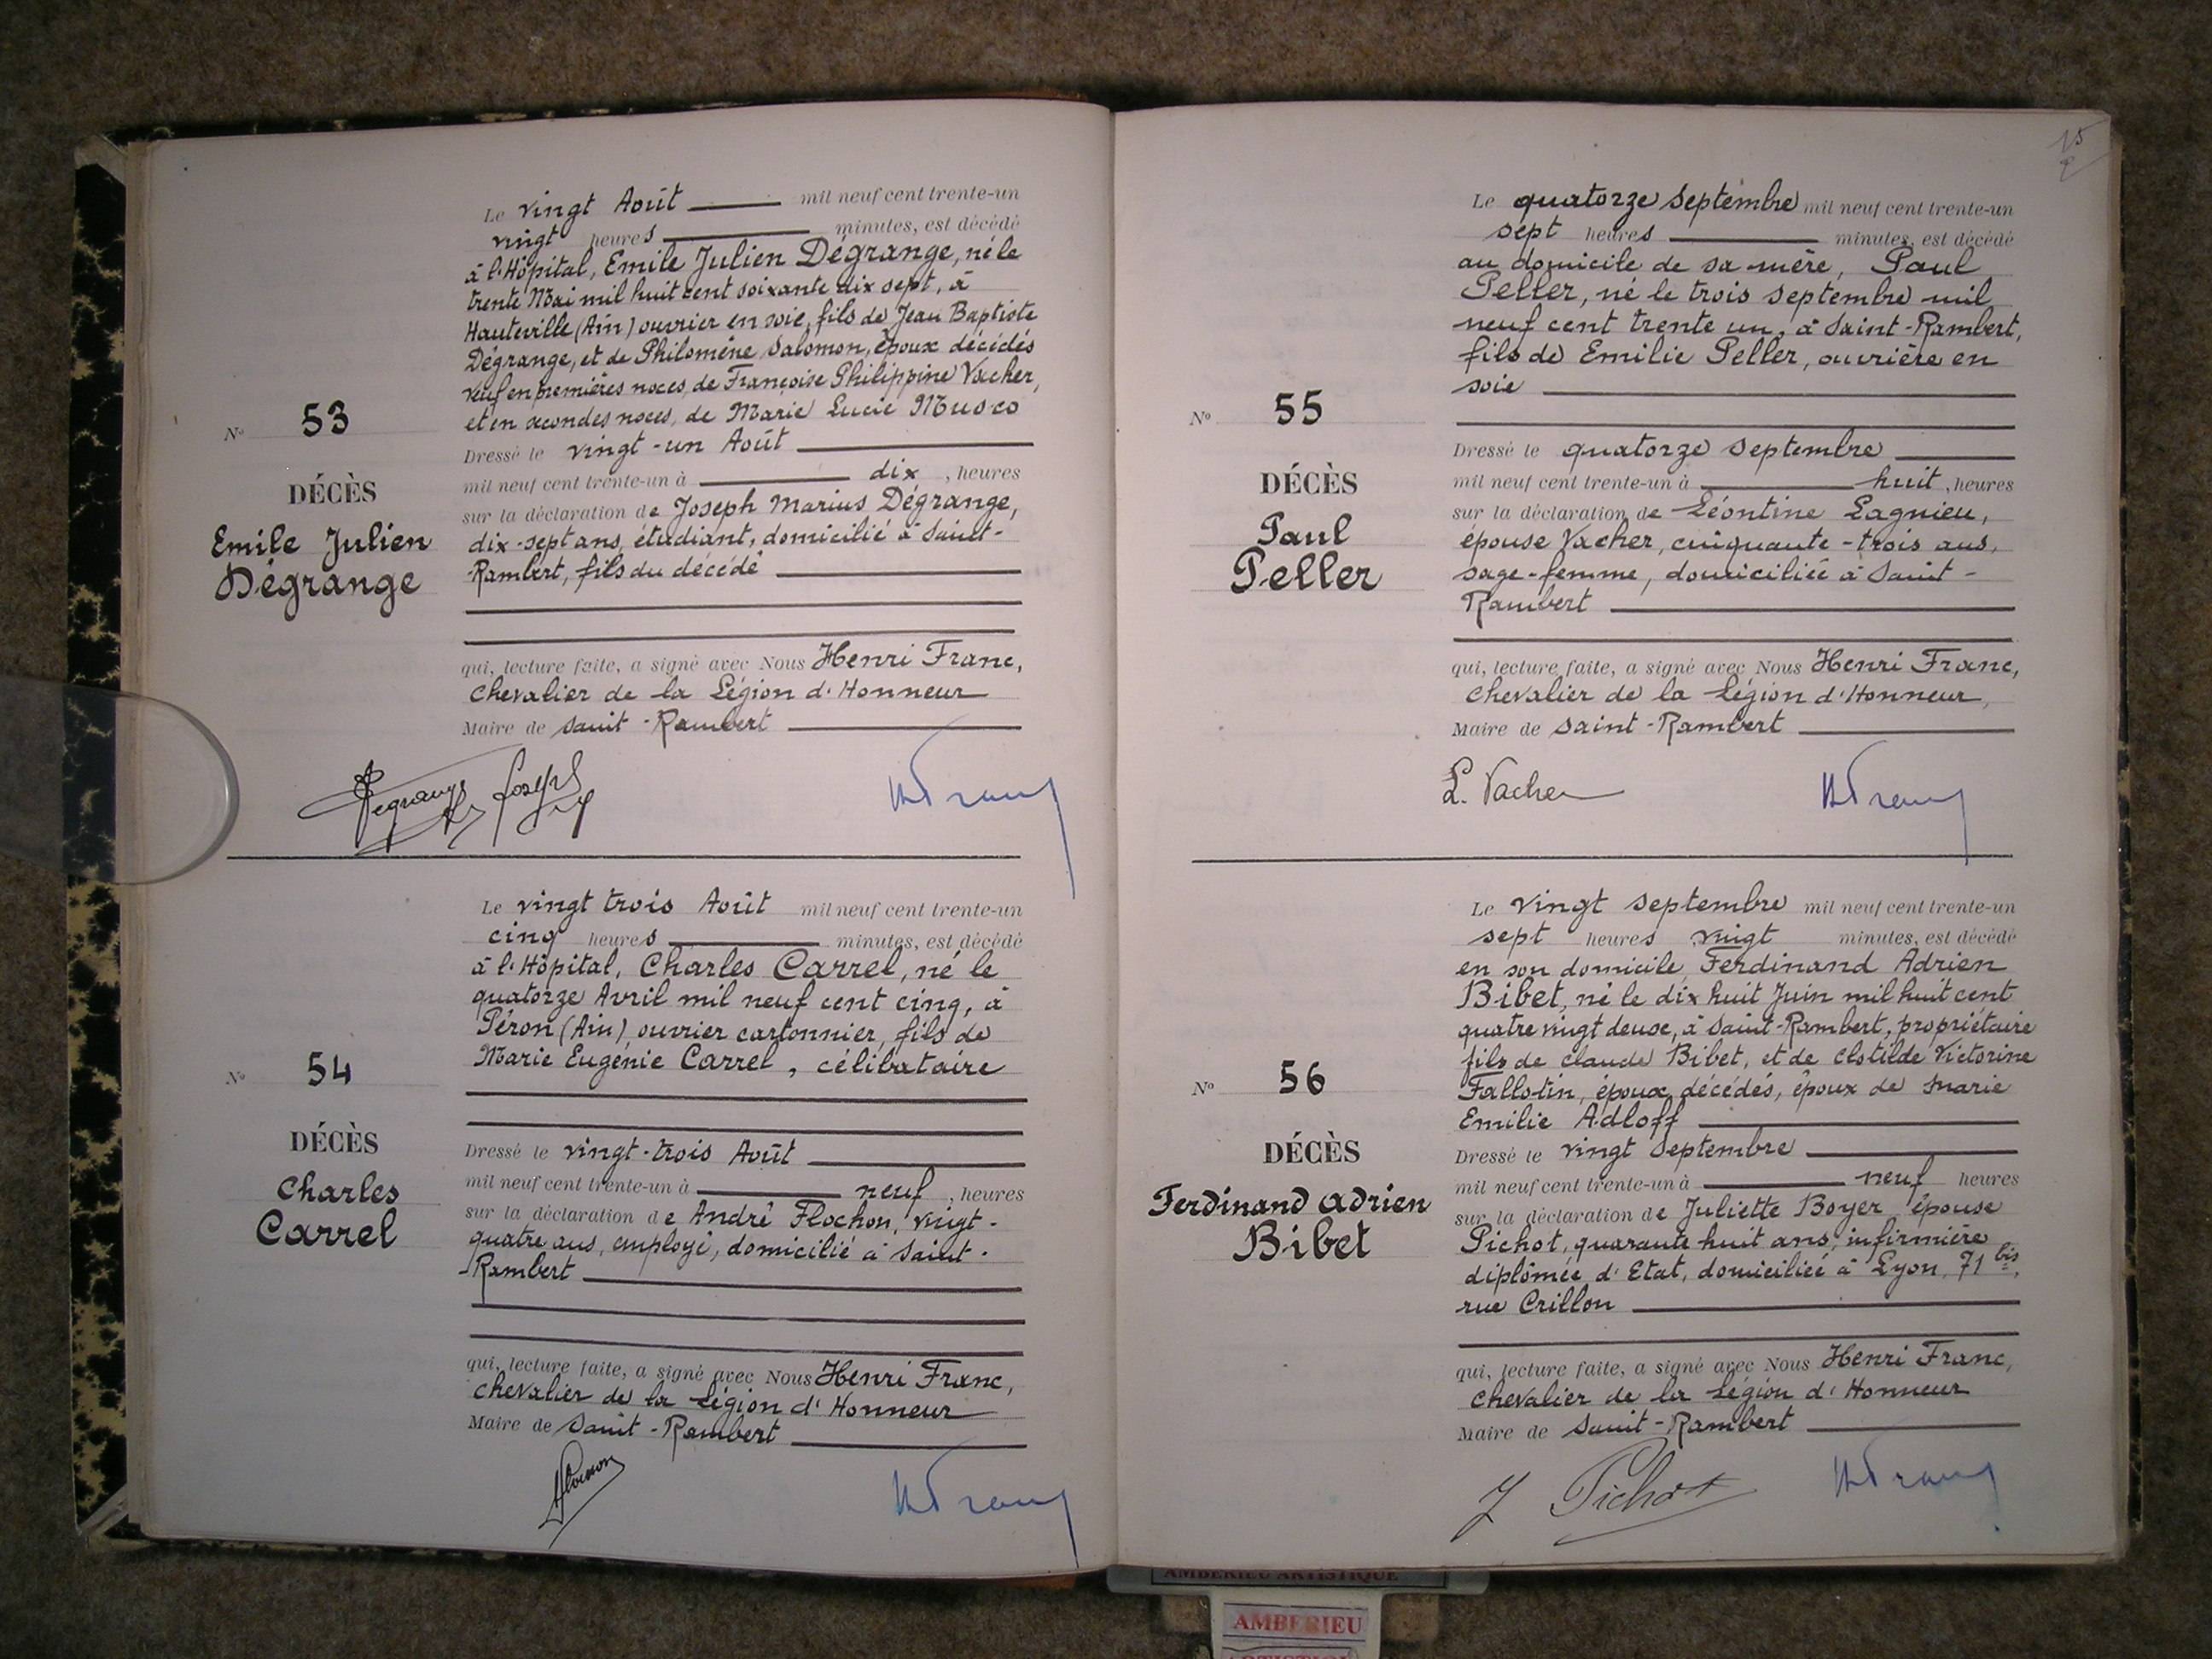 Le vingt Août mil neuf cent trente-un
vingt heures minutes, est décédé
à l'Hôpital, Emile Julien Dégrange, né le
trente Mai mil huit cent soixante dix sept, à
Hauteville (Ain) ouvrier en soie, fils de Jean Baptiste
Dégrange, et de Philomène Salomon, époux décédés
veuf en premières noces de Françoise Philippine Vacher,
et en secondes noces, de Marie Lucie Musco
N° 53
Dressé le vingt-un Août
mil neuf cent trente-un à dix, heures
DÉCÈS
Emile Julien
Dégrange
sur la déclaration de Joseph Marius Dégrange,
dix-sept ans, étudiant, domicilié à Saint-
Rambert, fils du décédé
qui, lecture faite, a signé avec Nous Henri Franc,
Chevalier de la Légion d'Honneur
Maire de Saint-Rambert
Dégrange Joseph
HFranc
Le vingt trois Août mil neuf cent trente-un
cinq heures minutes, est décédé
à l'Hôpital, Charles Carrel, né le
quatorze Avril mil neuf cent cinq, à
Péron (Ain), ouvrier cartonnier, fils de
Marie Eugénie Carrel, célibataire
N° 54
DÉCÈS
Charles
Carrel
Dressé le vingt-trois Août
mil neuf cent trente-un à neuf, heures
sur la déclaration de André Flochon, vingt-
quatre ans, employé, domicilié à Saint-
-Rambert
qui, lecture faite, a signé avec Nous Henri Franc,
Chevalier de la Légion d'Honneur
Maire de Saint-Rambert
HFranc
15
Le quatorze Septembre mil neuf cent trente-un
sept heures minutes, est décédé
au domicile de sa mère, Paul
Peller, né le trois Septembre mil
neuf cent trente un, à Saint-Rambert,
fils de Emilie Peller, ouvrière en
soie
N° 55
DÉCÈS
Paul
Peller
Dressé le quatorze Septembre
mil neuf cent trente-un à huit, heures
sur la déclaration de Léontine Lagnieu,
épouse Vacher, cinquante-trois ans,
sage-femme, domiciliée à Saint-
Rambert
qui, lecture faite, a signé avec Nous Henri Franc,
Chevalier de la Légion d'Honneur,
Maire de Saint-Rambert
L. Vacher
HFranc
Le vingt Septembre mil neuf cent trente-un
sept heures vingt minutes, est décédé
en son domicile Ferdinand Adrien
Bibet, né le dix huit Juin mil huit cent
quatre vingt deux, à Saint-Rambert, propriétaire
fils de Claude Bibet, et de Clotilde Victorine
Fallotin, époux décédés, époux de Marie
Emilie Adloff
N° 56
DÉCÈS
Ferdinand Adrien
Bibet
Dressé le vingt Septembre
mil neuf cent trente-un à neuf heures
sur la déclaration de Juliette Boyer, épouse
Pichot, quarante huit ans, infirmière
diplômée d'Etat, domiciliée à Lyon, 71 bis,
rue Crillon
qui, lecture faite, a signé avec Nous Henri Franc,
Chevalier de la Légion d'Honneur
Maire de Saint-Rambert
J Pichot
HFranc
AMBERIEU ARTISTIQUE
AMBERIEU
ARTISTIQUE